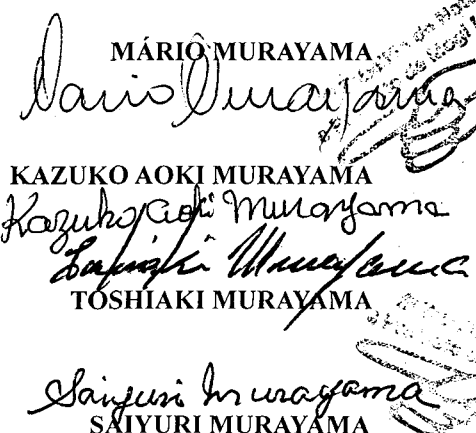 MÁRIO MURAYAMA
Mario Murayama
KAZUKO AOKI MURAYAMA
Kazuko Aoki Murayama
Toshiaki Murayama
TOSHIAKI MURAYAMA
Saiyuri Murayama
SAIYURI MURAYAMA